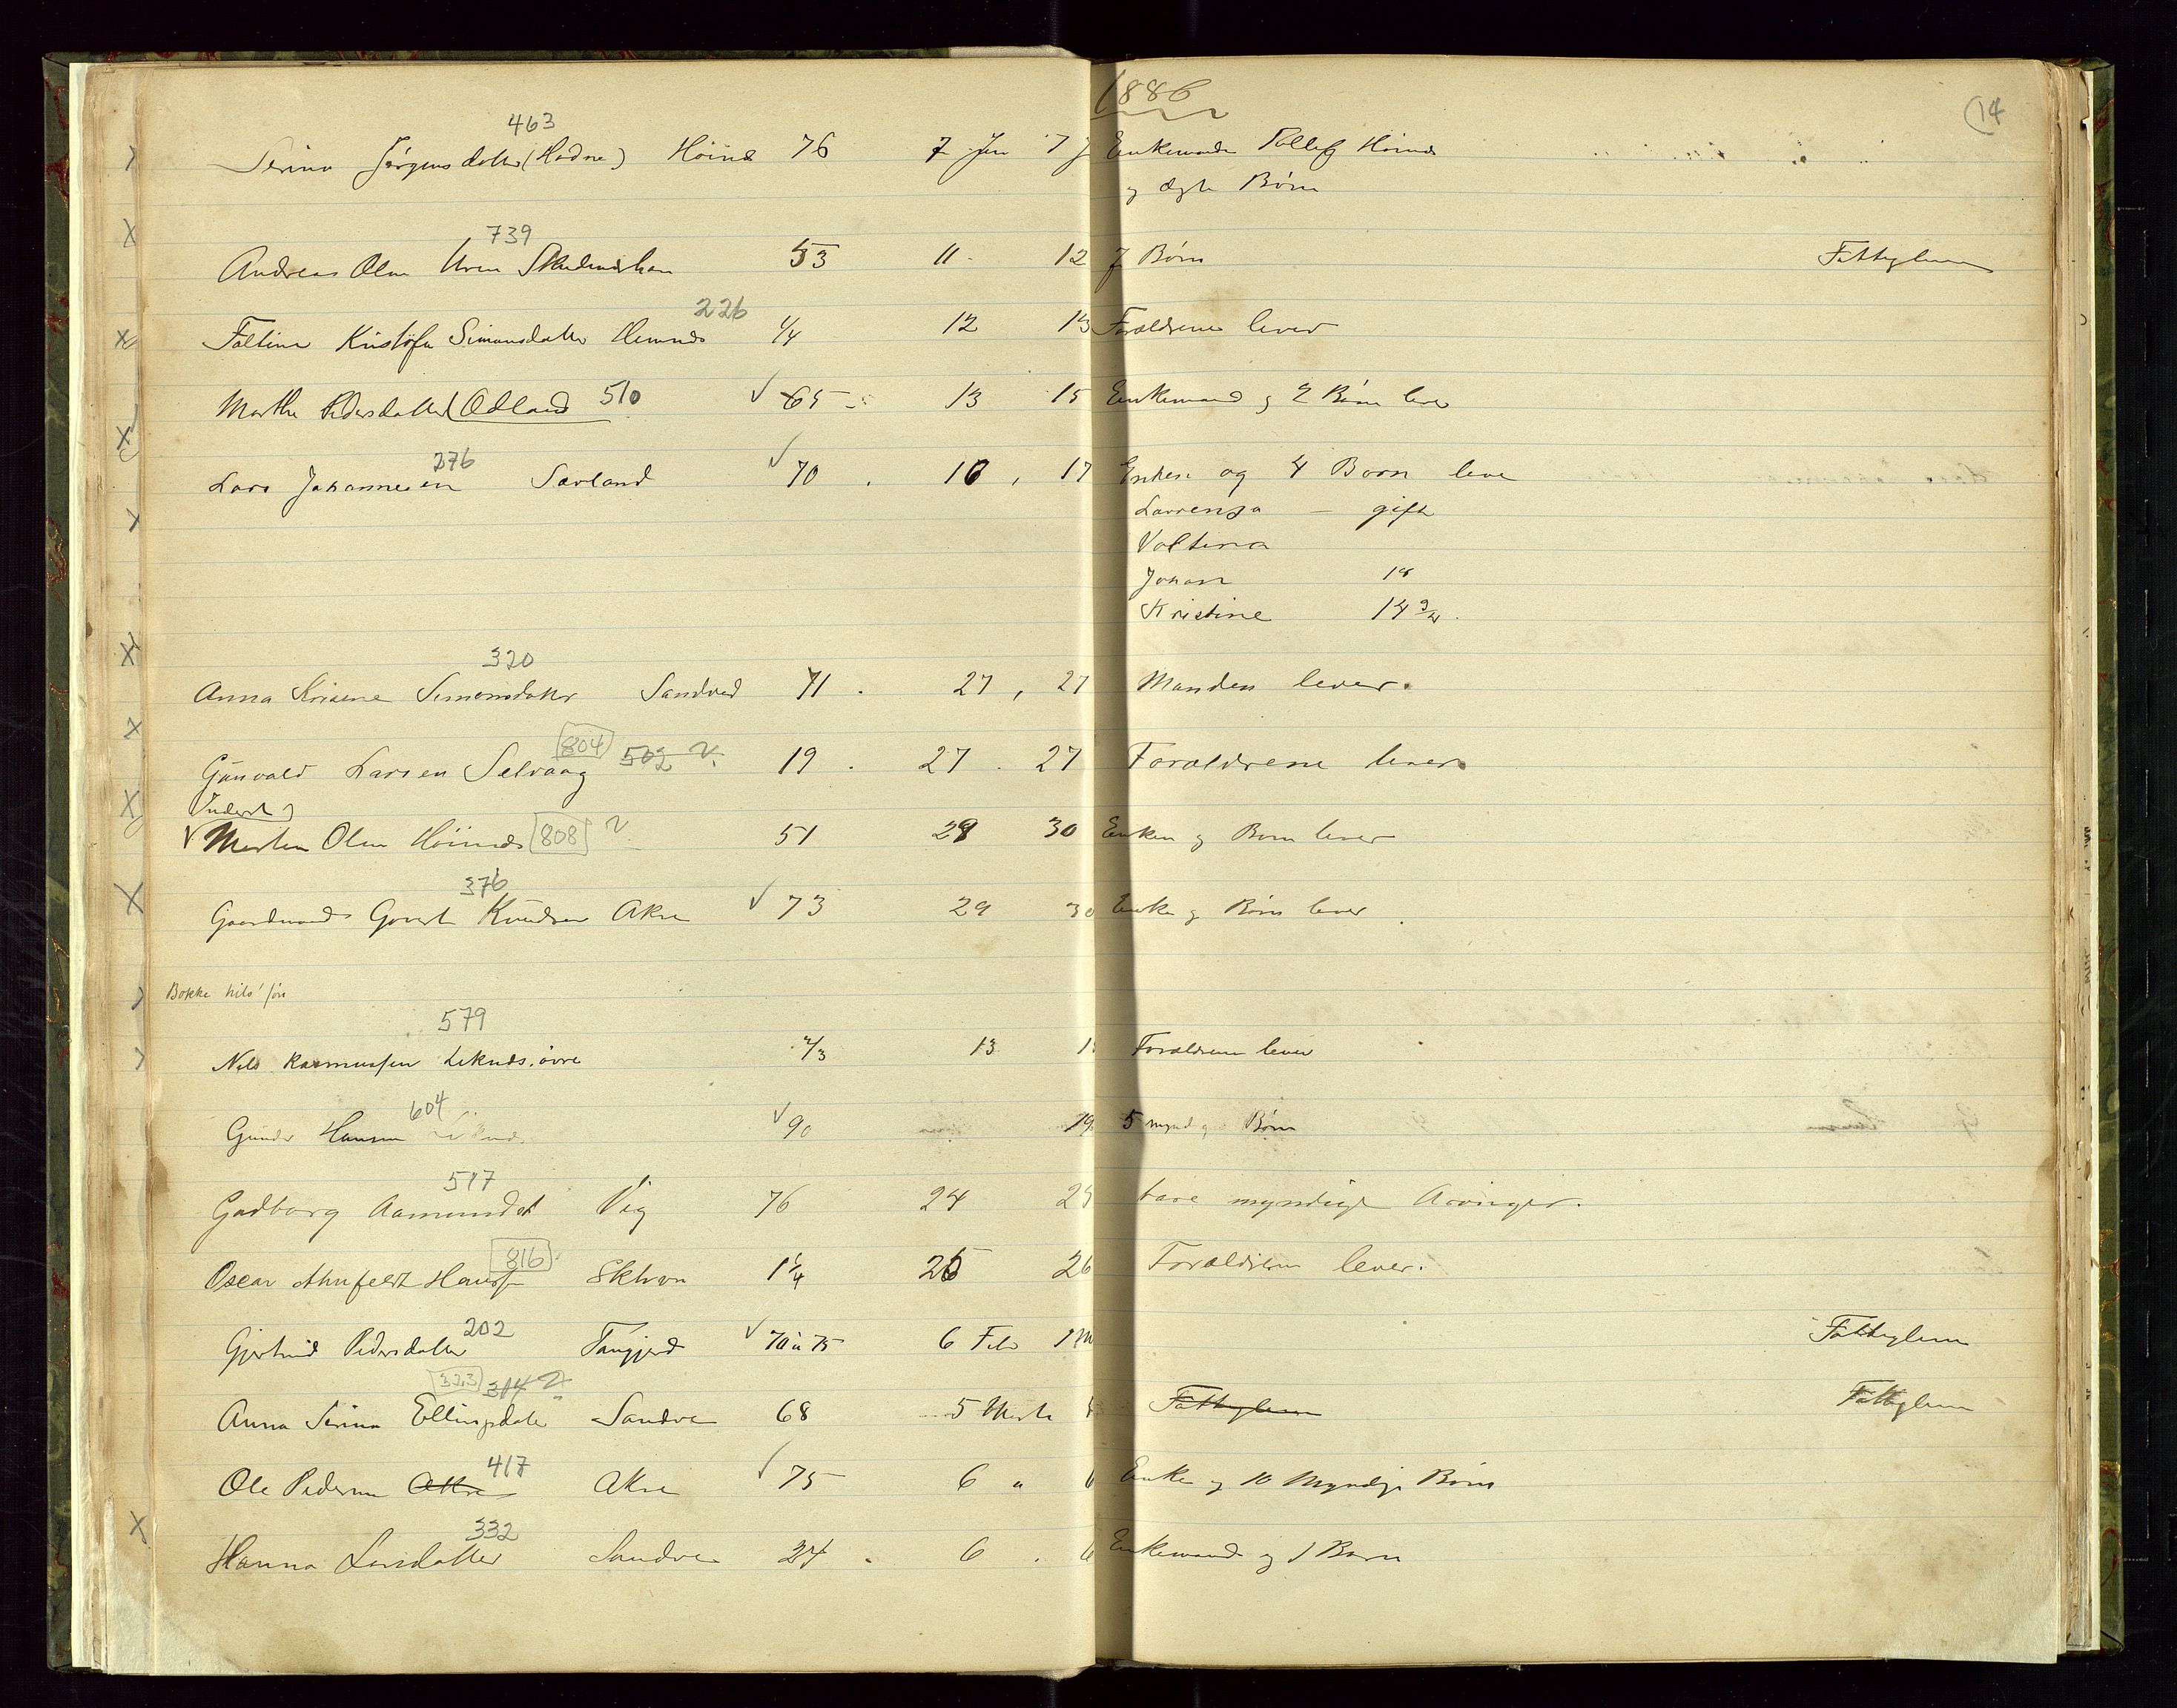 1886
14
463
Serina Jørgensdatter (Hadne) Höines 76 7 Jan 7 J Enkemanden Tollef Höines
og ægte Børn
739
Andreas Olsen Uren Skudeneshavn 53 11 12 7 Børn Fattiglem
226
Foltine Kristofa Simonsdatter Hemnes 1/4 12 13 Forældrene lever
Marthe Pedersdatter (Ødland 510 65 13 15 Enkemand og 2 Børn lever
276
Lars Johannesen Sævland 70 16 17 Enken og 4 Børn leve
Lavrensa - gift
Valtina
Johan 18
Kristine 14 3/4
320
Anna Serine Simonsdatter Sandved 71 27 27 Manden lever.
804 502
Gunvald Larsen Selvaag 19 27 27 Forældrene lever
Morten Olsen Höines 808 51 28 30 Enken og Børn lever
376
Gaardmand Govert Knudsen Akre 73 29 30 Enke og Børn lever
Bokke
579
Nels Rasmussen Liknes, øvre 2/3 13 Forældrene lever
604
Gunder Hansen 90 19 5 mynd Børn
517
Gudborg Aamundsd Vig 76 24 25 bare myndige Arvinger.
816
Oscar Ahnfeldt Hansen 1 1/4 26 26 Forældrene lever.
202
Gjertrud Pedersdatter Tangjerd 70 à 75 6 Feb Fattiglem
323 314
Anna Serina Ellingsdatter Sandve 68 5 Marts Fattiglem Fattiglem
417
Ole Pedersen Akre Akre 75 6 " 6 Enke og 10 Myndige Børn
332
Hanna Larsdatter Sandve 24 6 6 Enkemand og 1 Barn